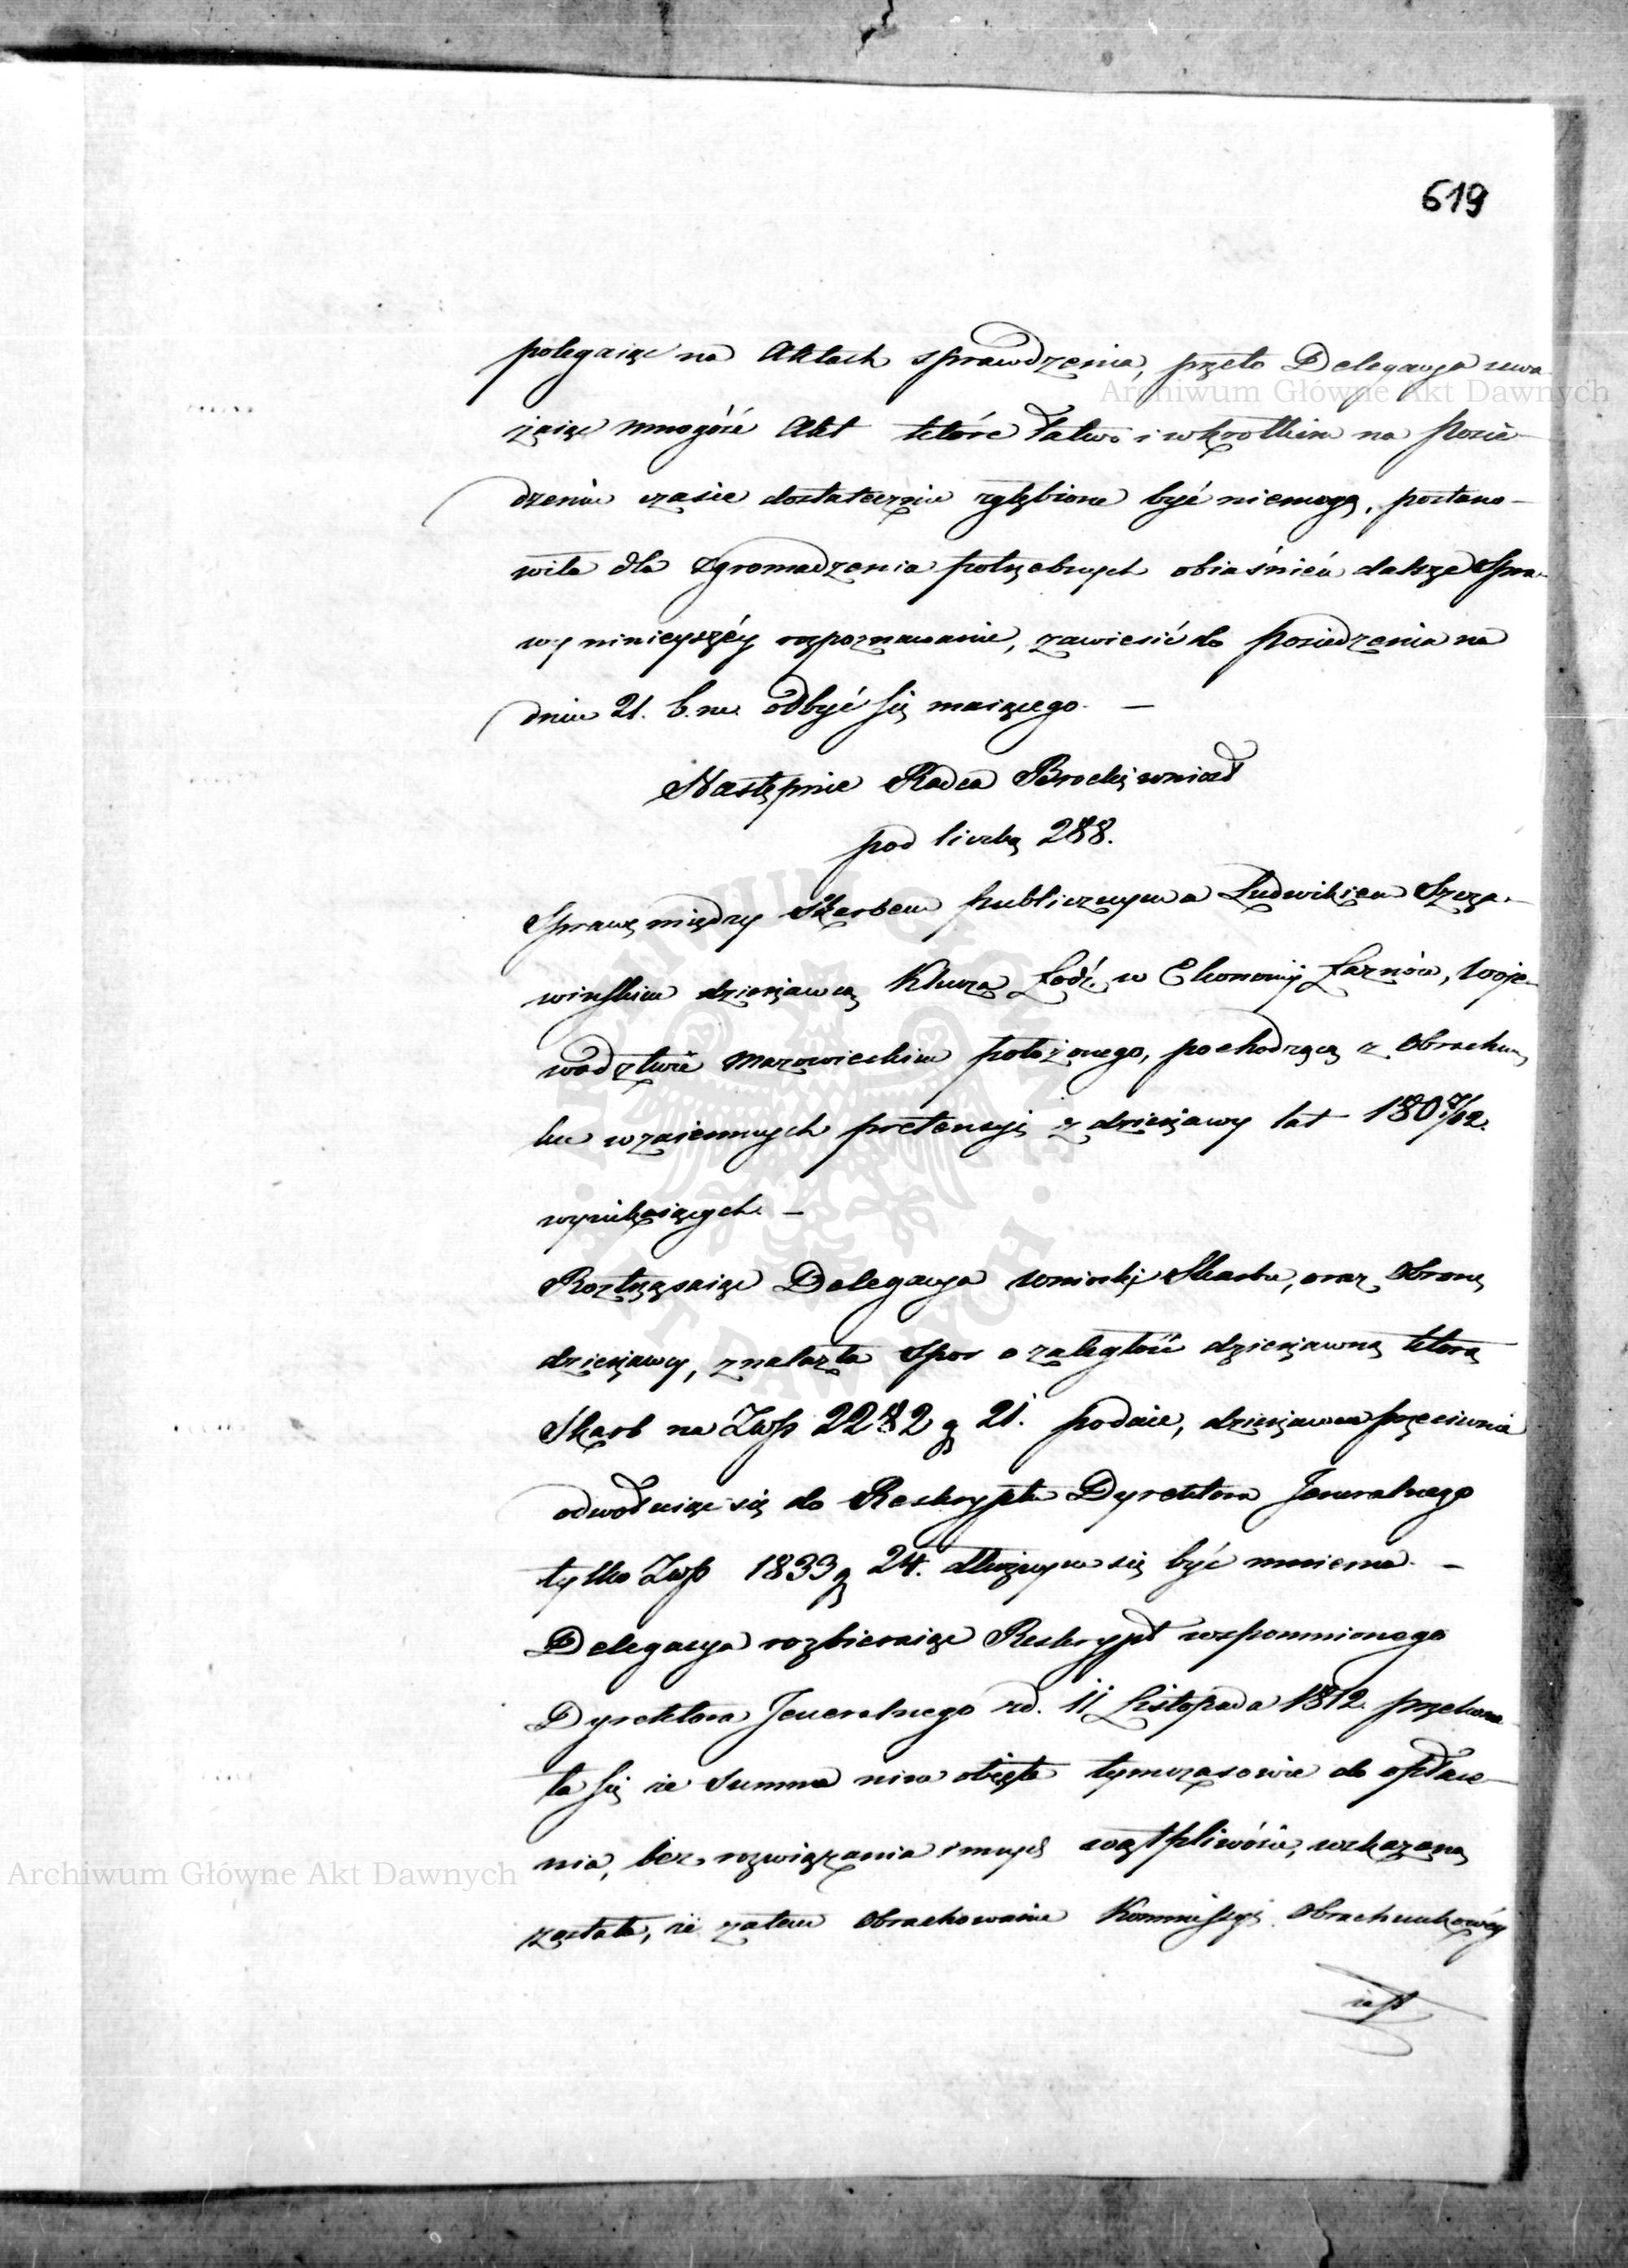 619
polegaiąc na Aktach sprawdzenia, przeto Delegacya uwa-
żaiąc mnogość Akt które łatwo i w krotkim na Posie-
dzeniu czasie dostatecznie zgłębione być niemogą, postano-
wiła dla zgromadzenia potrzebnych obiaśnień dalsze Spra-
wy ninieyszéy rozpoznawanie, zawiesić do Posiedzenia na
dniu 21. b.m. odbyć się maiącego. —
Następnie Radca Brocki wniosł
pod liczbą 288.
Sprawę między Skarbem publicznym a Ludwikiem Szcza-
winskim dzierżawcą Klucza Łodź w Ekonomij Łaznów, Woje-
wodztwie Mazowieckim położonego, pochodzącą z Obrachun-
ku wzaiemnych pretensyi z dzierżawy lat 180
wynikaiących. —
Roztrząsaiąc Delegacya wnioski Skarbu, oraz Obronę
dzierżawcy, znalazła Spor o zaległość dzierżawną którą
Skarb na Złp 2282 g 21. podaie, dzierżawca przeciwnie
odwołuiąc się do Reskryptu Dyrektora Jeneralnego
tylko Złp 1833 g 24. dłużnym się być mniema. —
Delegacya rozbieraiąc Reskrypt wspomnionego
Dyrektora Jeneralnego zd. 11 Listopada 1812. przekona-
ła się że Summa nim obięta tymczasowie do opłace-
nia, bez rozwiązania innych wątpliwości, wskazaną
została, że zatem Obrachowanie Kommissyi Obrachunkowéy
iest
Archiwum Główne Akt Dawnych
Archiwum Główne Akt Dawnych
ARCHIWUM GŁÓWNE
AKT DAWNYCH